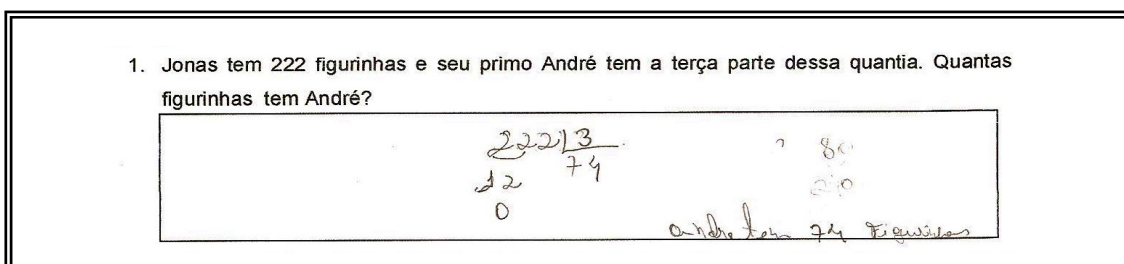 1. Jonas tem 222 figurinhas e seu primo André tem a terça parte dessa quantia. Quantas
figurinhas tem André?
222 3
74
12
0
andre tem 74 Figurinhas